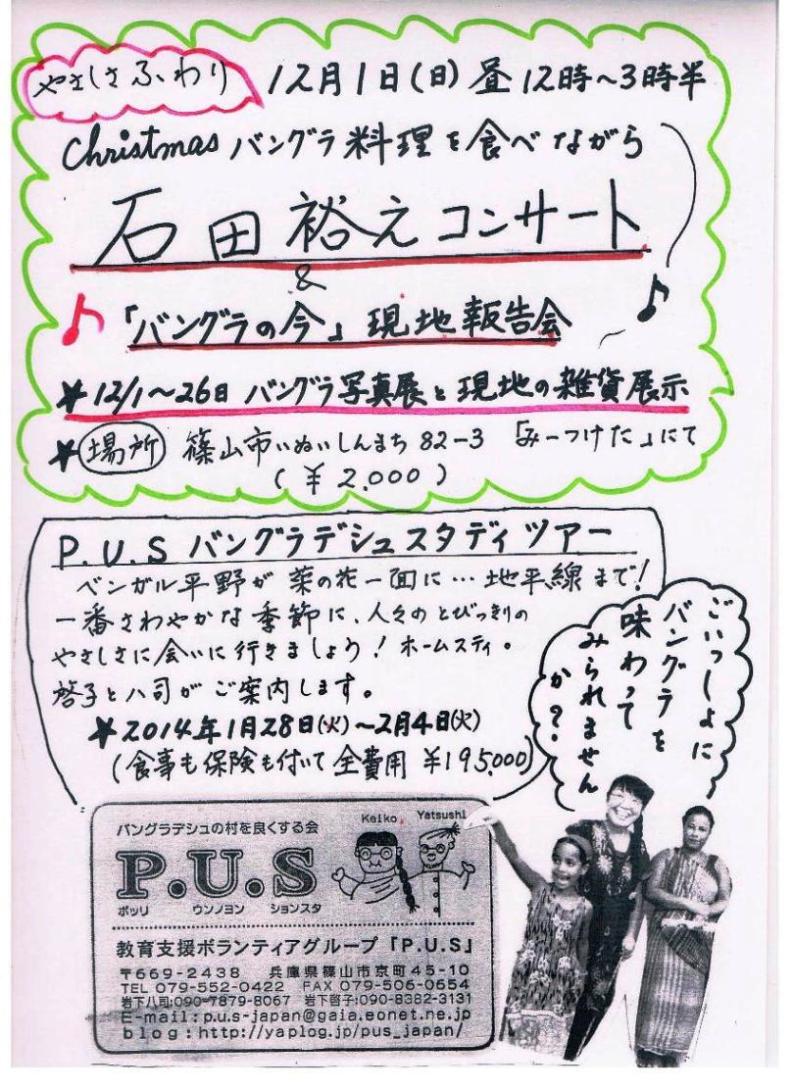 やさしさふわり 12月1日(日)昼12時～3時半
Christmas バングラ料理を食べながら
石田裕之コンサート
&
♪「バングラの今」現地報告会 ♪
★12/1～26日 バングラ写真展と現地の雑貨展示
★場所 篠山市いぬいしんまち82-3 「みーつけた」にて
(￥2,000)
P.U.S バングラデシュスタディツアー
ベンガル平野が菜の花一面に…地平線まで!
一番さわやかな季節に、人々のとびっきりの
やさしさに会いに行きましょう! ホームスティ。
啓子と八司がご案内します。
★2014年1月28日(火)～2月4日(火)
(食事も保険も付いて全費用 ￥195,000)
ごいっしょに
バングラを
味わって
みられません
か?
バングラデシュの村を良くする会
Keiko Yatsushi
P.U.S
ポッリ ウンノヨン ションスタ
教育支援ボランティアグループ「P.U.S」
〒669-2438 兵庫県篠山市京町45-10
TEL 079-552-0422 FAX 079-506-0654
岩下八司:090-7879-8067 岩下啓子:090-8382-3131
E-mail:p.u.s-japan@gaia.eonet.ne.jp
blog:http://yaplog.jp/pus_japan/